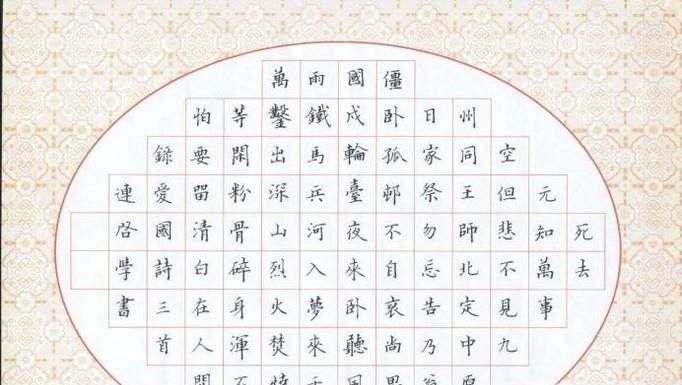 死去
元知萬事
空但悲不見九
州同王師北定中原
日家祭勿忘告乃翁
僵卧孤邨不自哀尚思
國戍輪臺夜來卧聽風
雨鐵馬兵河入夢來千
萬鑿出深山烈火焚燒
等閑粉骨碎身渾不
怕要留清白在人間
錄愛國詩三首
連啓學書